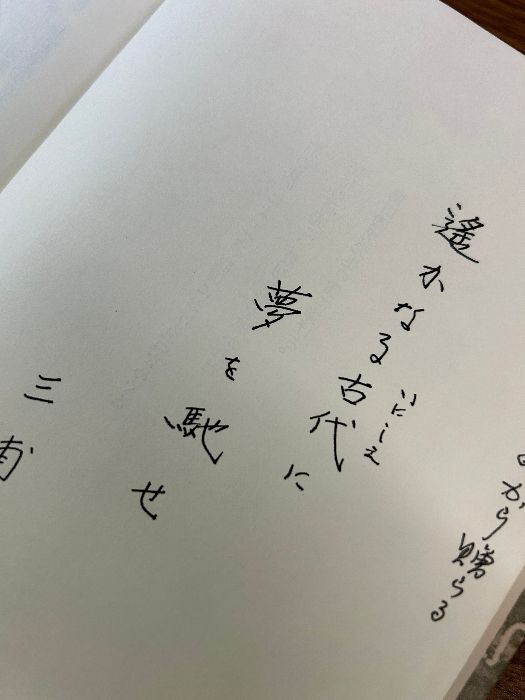 から贈らる
いにしえ
遙かなる古代に
夢を馳せ
三